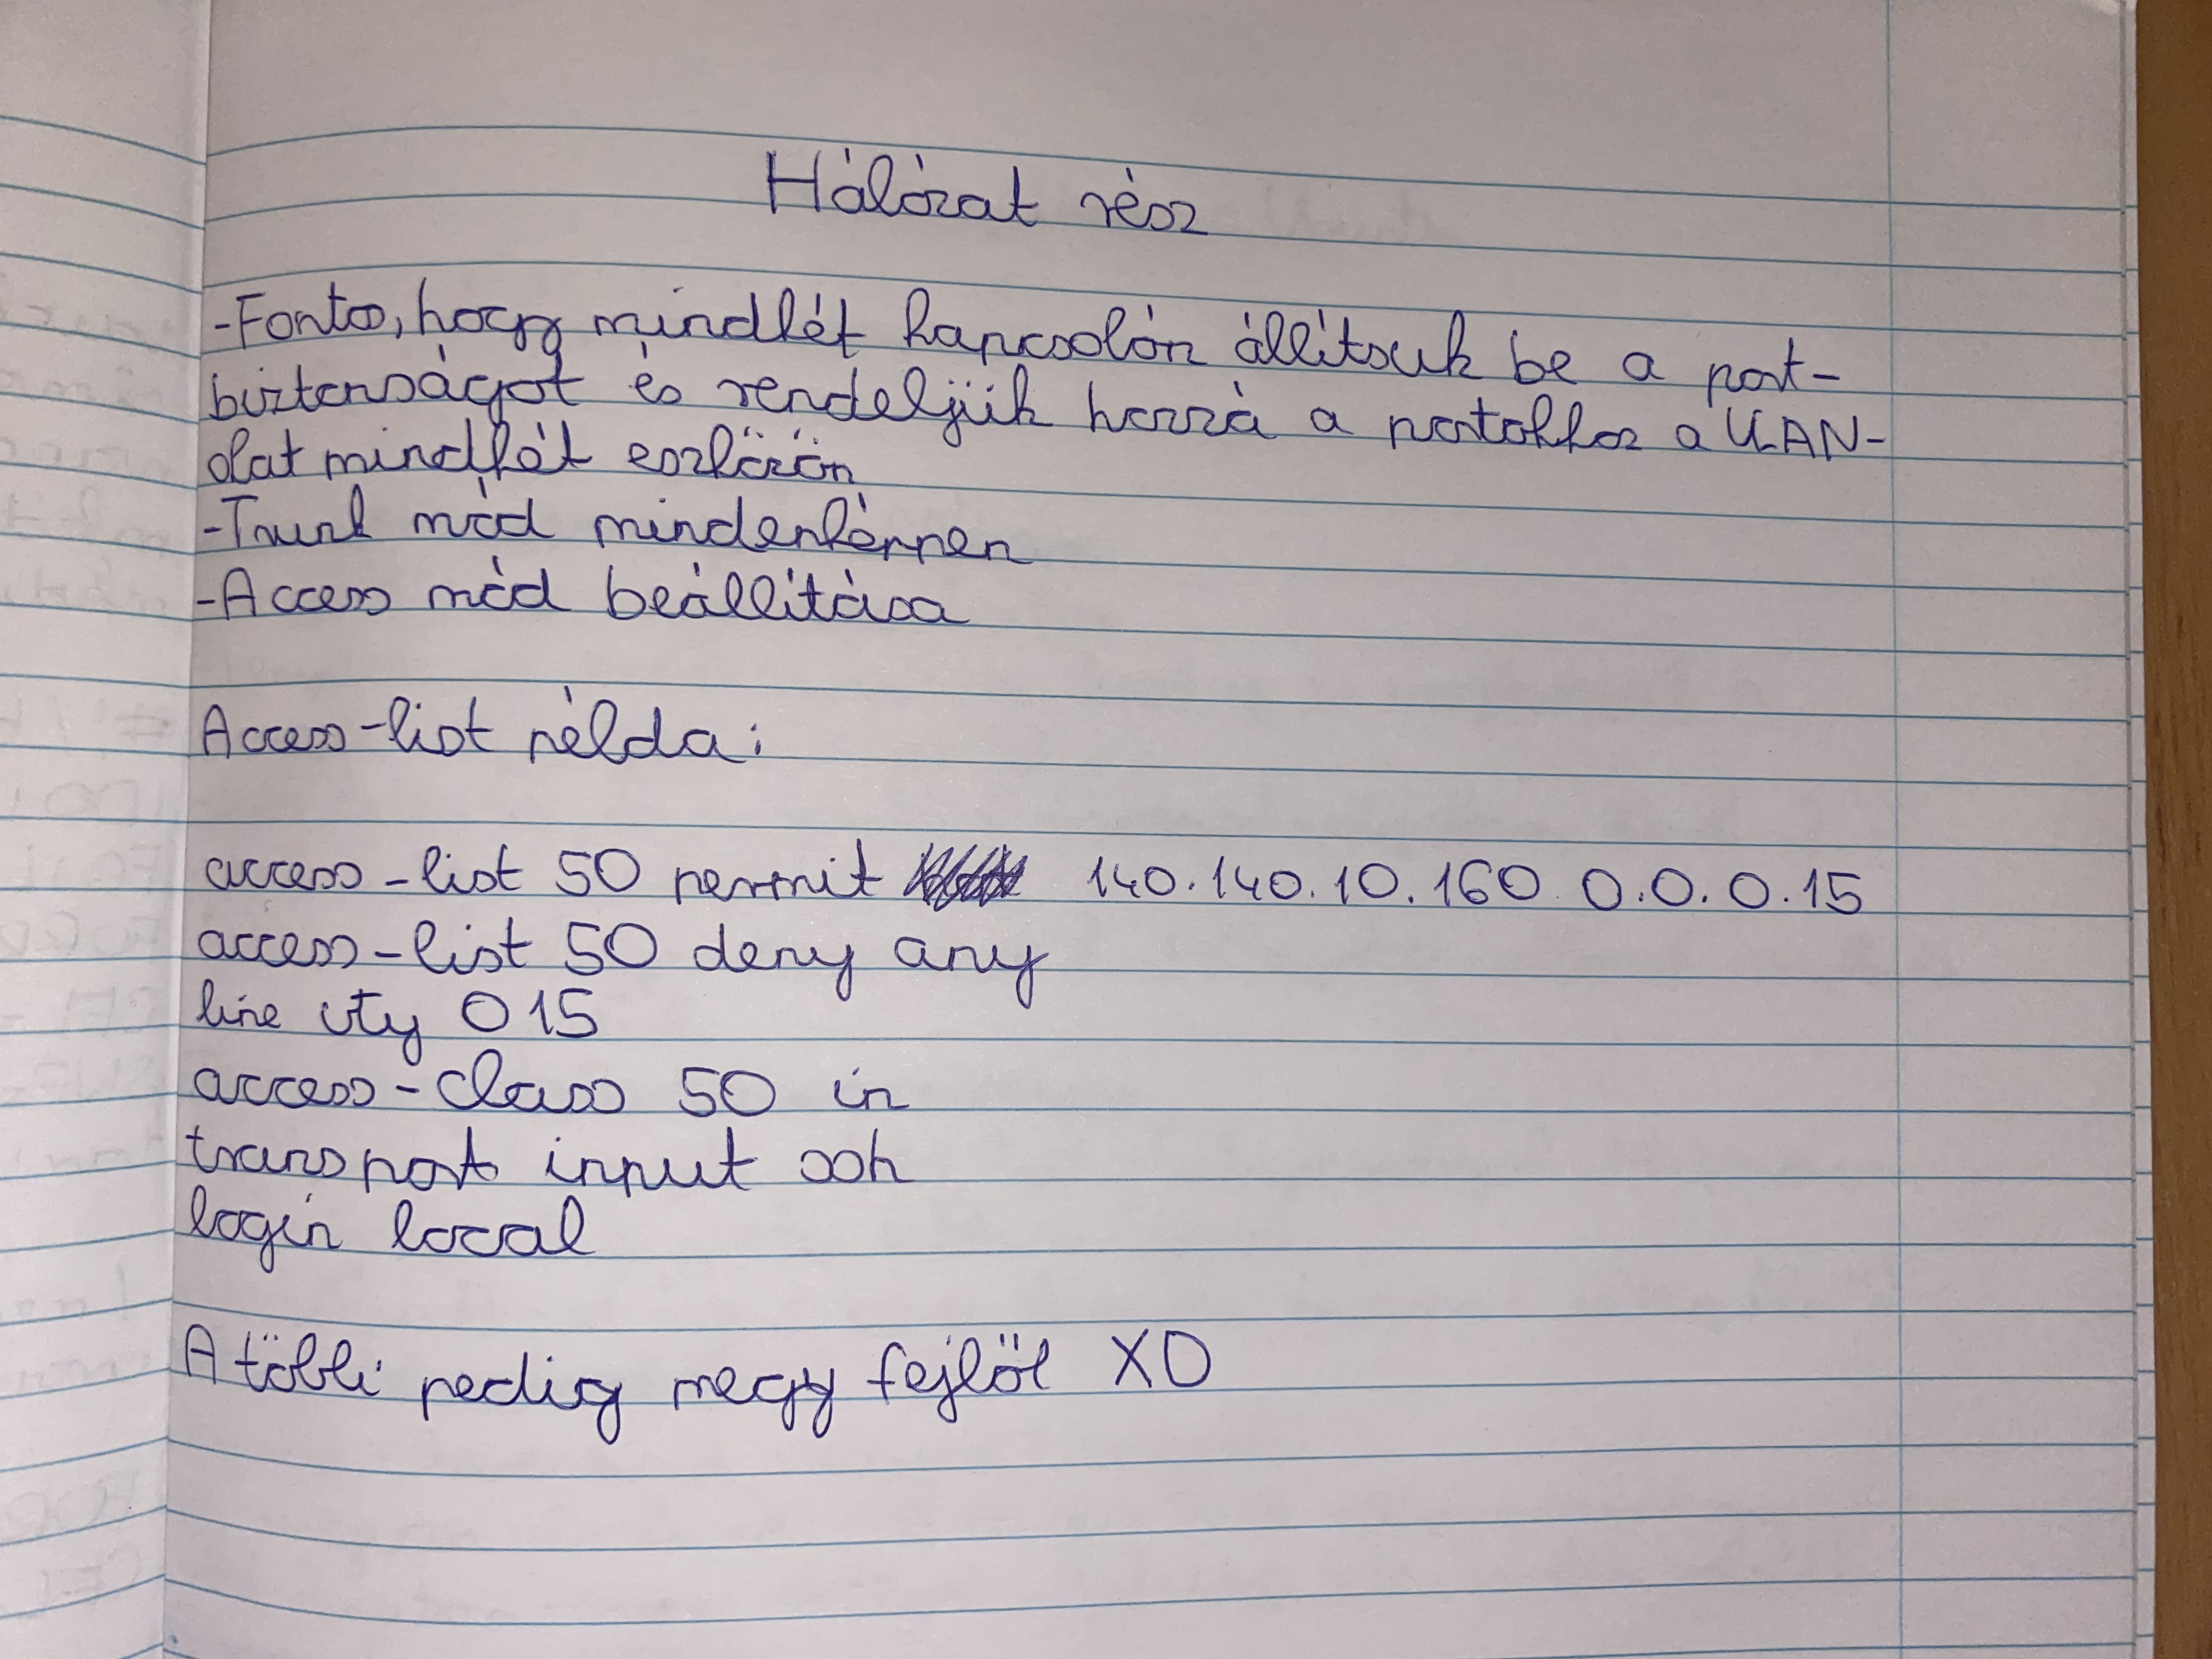 Hálózat rész
-Fontos, hogy mindkét kapcsolón állítsuk be a port-
biztonságot és rendeljük hozzá a portokhoz a VLAN-
okat mindkét eszközön
-Trunk mód mindenképpen
-Access mód beállítása
Access-list példa:
access-list 50 permit 140.140.10.160 0.0.0.15
access-list 50 deny any
line vty 0 15
access-class 50 in
transport input ssh
login local
A többi pedig megy fejből XD